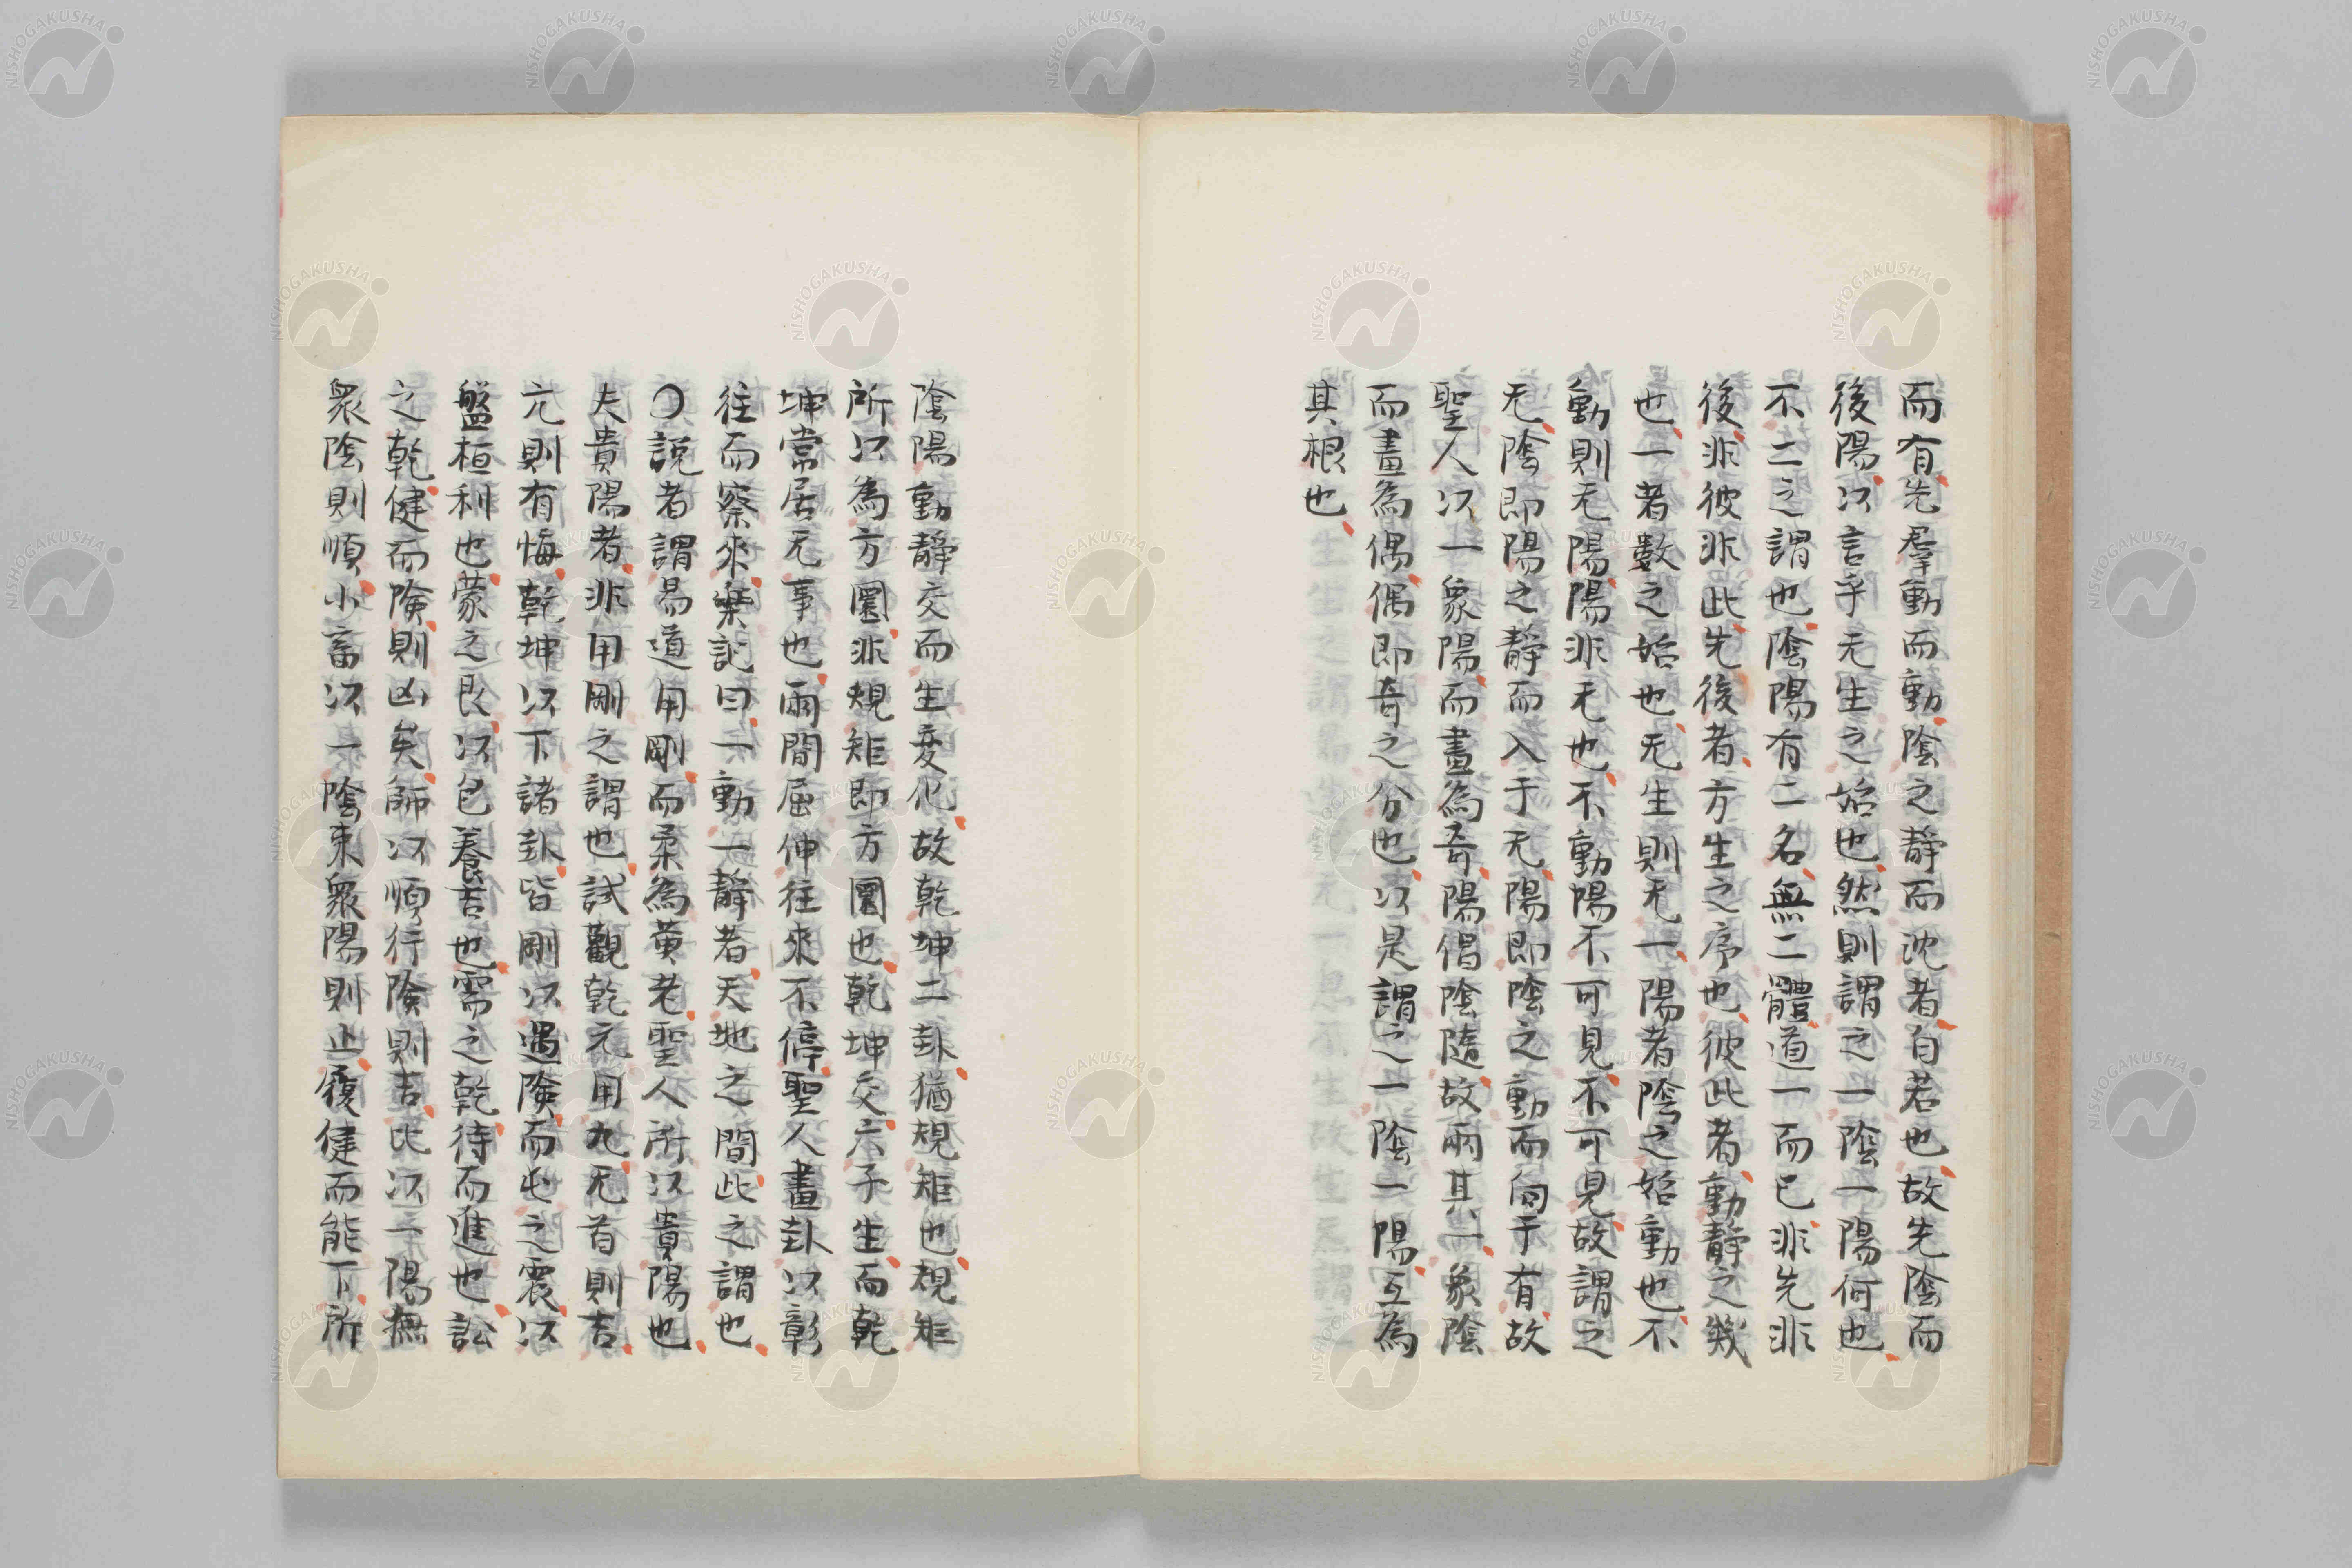 而有先羣動而動陰之静而沈者自若也故先陰而
後陽以言乎无生之始也然則謂之一陰一陽何也
不二之謂也陰陽有二名無二體道一而已非先非
後非彼非此先後者方生之序也彼此者動静之幾
也一者數之始也无生則无一陽者陰之始動也不
動則无陽陽非无也不動陽不可見不可見故謂之
无陰即陽之静而入于无陽即陰之動而向于有故
聖人以一象陽而畫為奇陽倡陰隨故兩其一象陰
而畫為偶偶即奇之分也以是謂之一陰一陽互為
其根也
陰陽動静交而生変化故乾坤二卦猶規矩也規矩
所以為方圓非規矩即方圓也乾坤交六子生而乾
坤常居无事也兩間屈伸往來不停聖人畫卦以彰
往而察來楽記曰一動一静者天地之間此之謂也
〇説者謂易道用剛而柔為黄老聖人所以貴陽也
夫貴陽者非用剛之謂也試觀乾元用九无首則吉
亢則有悔乾坤以下諸卦皆剛以遇険而屯之震以
盤桓利也蒙之艮以包養吉也需之乾待而進也訟
之乾健而険則凶矣師以順行険則吉比以一陽撫
衆陰則順小畜以一陰束衆陽則止履健而能下所
NISHOGAKUSHA